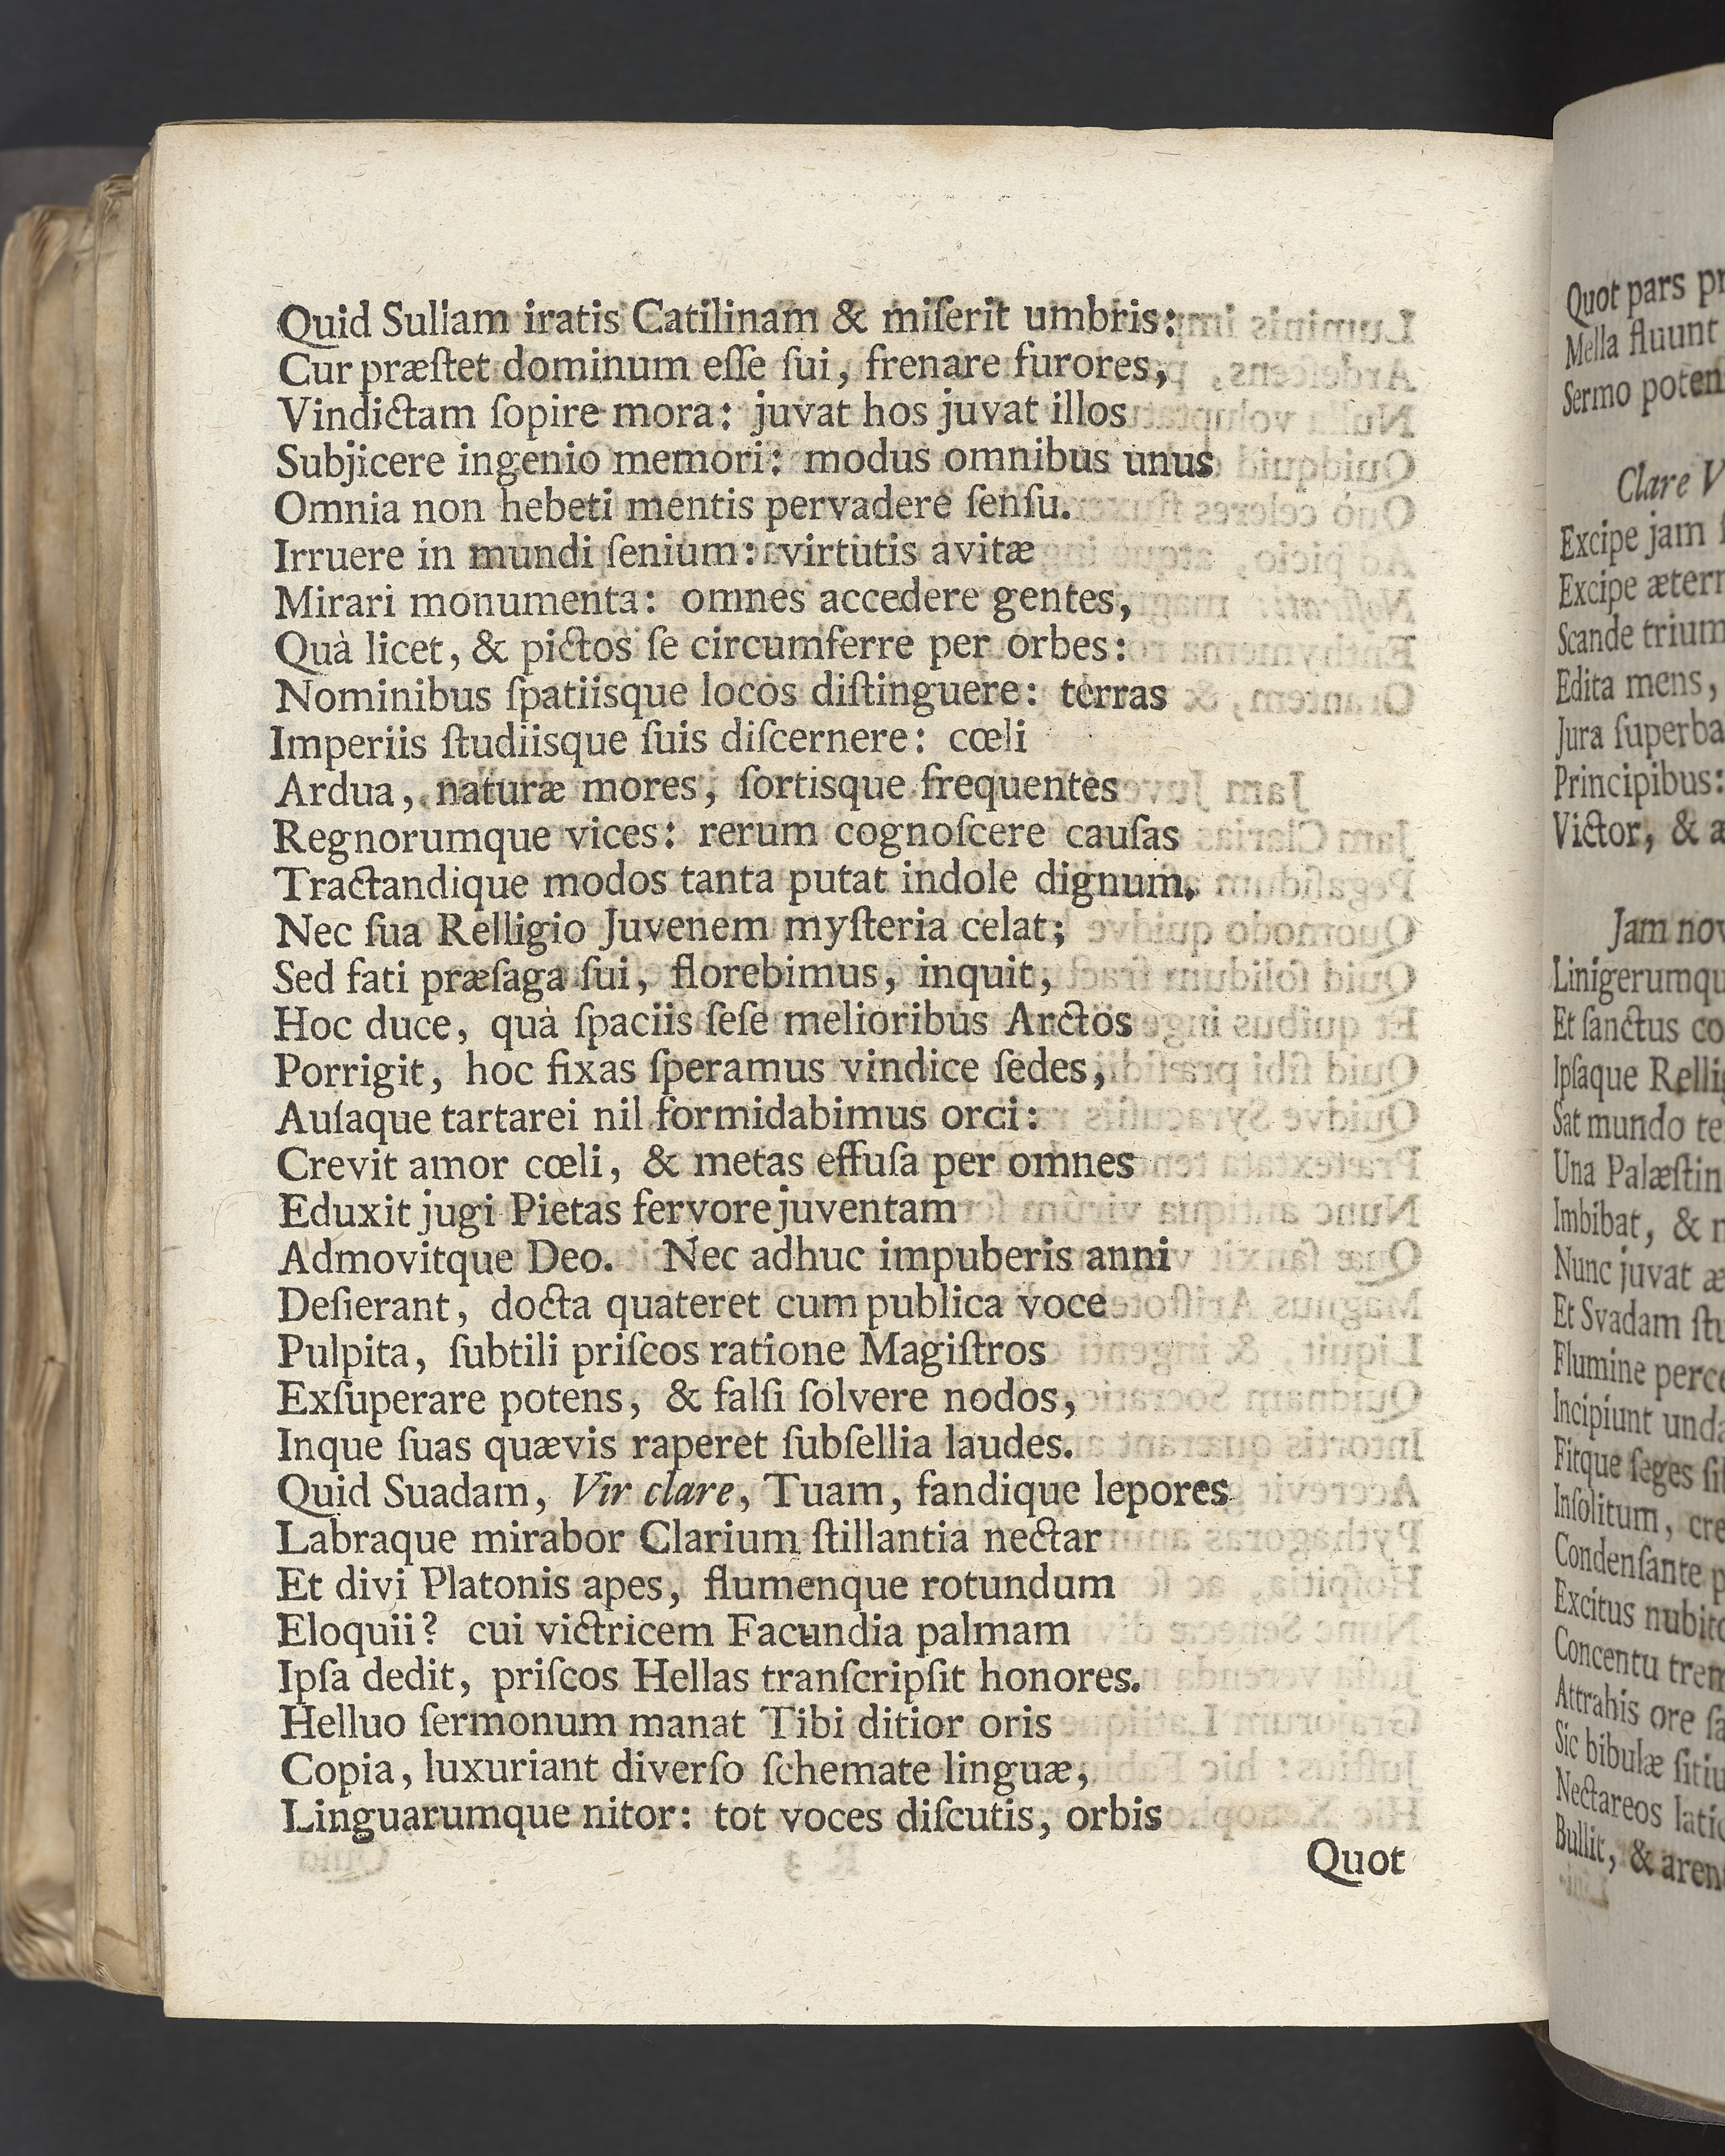 Quid Sullam iratis Catilinam & miſerit umbris:
Cur præſtet dominum eſſe ſui, frenare furores,
Vindictam ſopire mora: juvat hos juvat illos
Subjicere ingenio memori: modus omnibus unus
Omnia non hebeti mentis pervadere ſenſu.
Irruere in mundi ſenium: virtutis avitæ
Mirari monumenta: omnes accedere gentes,
Quà licet, & pictos ſe circumferre per orbes:
Nominibus ſpatiisque locos diſtinguere: terras
Imperiis ſtudiisque ſuis diſcernere: cœli
Ardua, naturæ mores, ſortisque frequentes
Regnorumque vices: rerum cognoſcere cauſas
Tractandique modos tanta putat indole dignum.
Nec ſua Relligio Juvenem myſteria celat;
Sed fati præſaga ſui, florebimus, inquit,
Hoc duce, quà ſpaciis ſeſe melioribus Arctos
Porrigit, hoc fixas ſperamus vindice ſedes,
Auſaque tartarei nil formidabimus orci:
Crevit amor cœli, & metas effuſa per omnes
Eduxit jugi Pietas fervore juventam
Admovitque Deo. Nec adhuc impuberis anni
Deſierant, docta quateret cum publica voce
Pulpita, ſubtili priſcos ratione Magiſtros
Exſuperare potens, & falſi ſolvere nodos,
Inque ſuas quævis raperet ſubſellia laudes.
Quid Suadam, Vir clare, Tuam, fandique lepores
Labraque mirabor Clarium ſtillantia nectar
Et divi Platonis apes, flumenque rotundum
Eloquii? cui victricem Facundia palmam
Ipſa dedit, priſcos Hellas tranſcripſit honores.
Helluo ſermonum manat Tibi ditior oris
Copia, luxuriant diverſo ſchemate linguæ,
Linguarumque nitor: tot voces diſcutis, orbis
Quot
Quot pars
Mella fluunt
Sermo
Clare
Excipe jam
Excipe
Scande
Edita mens,
Jura ſuperba
Principibus:
Victor, &
Jam
Et ſanctus
Ipſaque
Sat mundo
Una
Imbibat, &
Nunc juvat
Et Svadam
Flumine
Incipiunt
Fitque ſeges
Inſolitum,
Condenſante
Excitus
Concentu
Attrahis ore
Sic bibulæ
Nectareos
Bullit, &